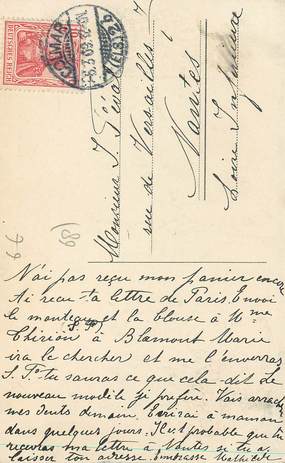 DEUTSCHES REICH
COLMAR
(ELS.) 2 b
Monsieur J.
rue de Versailles
Nantes
Loire Inférieure
(89
N'ai pas reçu mon panier encore
Ai reçu ta lettre de Paris. Envoi
le manteau et la blouse à Mme
S. P.
Chirion à Blamont Marie
ira le chercher et me l'enverras
S.P. tu sauras ce que cela dit de
nouveau modèle je prefer. Vais arracher
mes dents dmain. Ecrirai à maman
dans quelques jours. Il est probable que tu
recevras ma lettre à Nantes si tu as
laisser ton adresse. Embrasse Mathilde